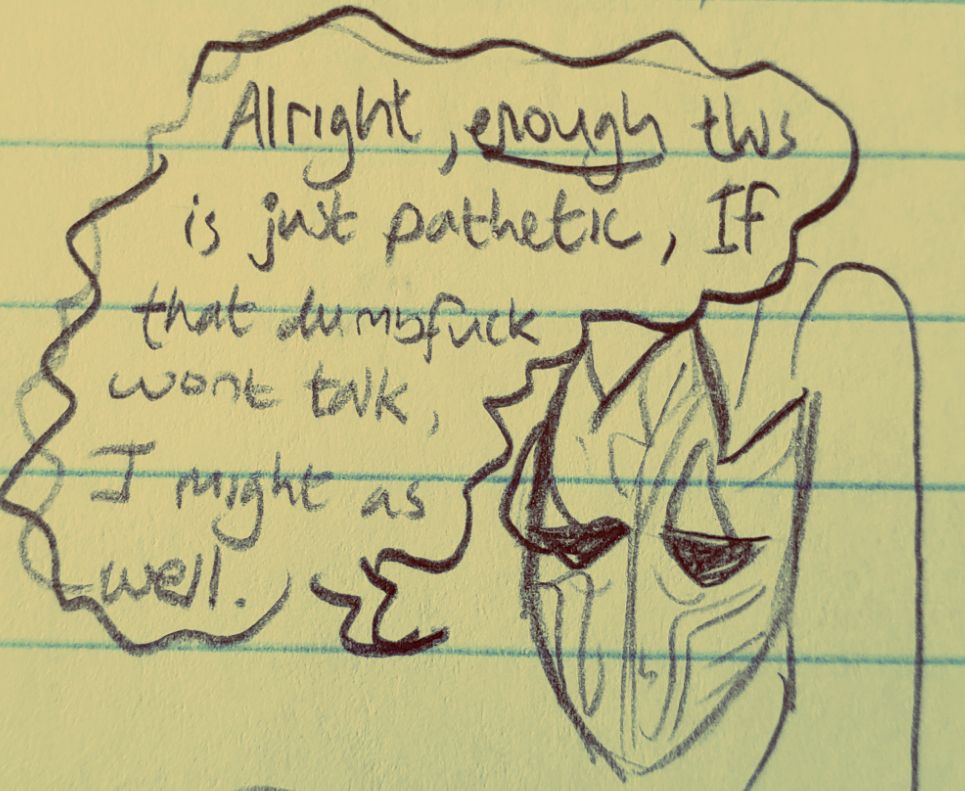 Alright, enough this
is just pathetic, If
that dumbfuck
wont talk,
I might as
well.